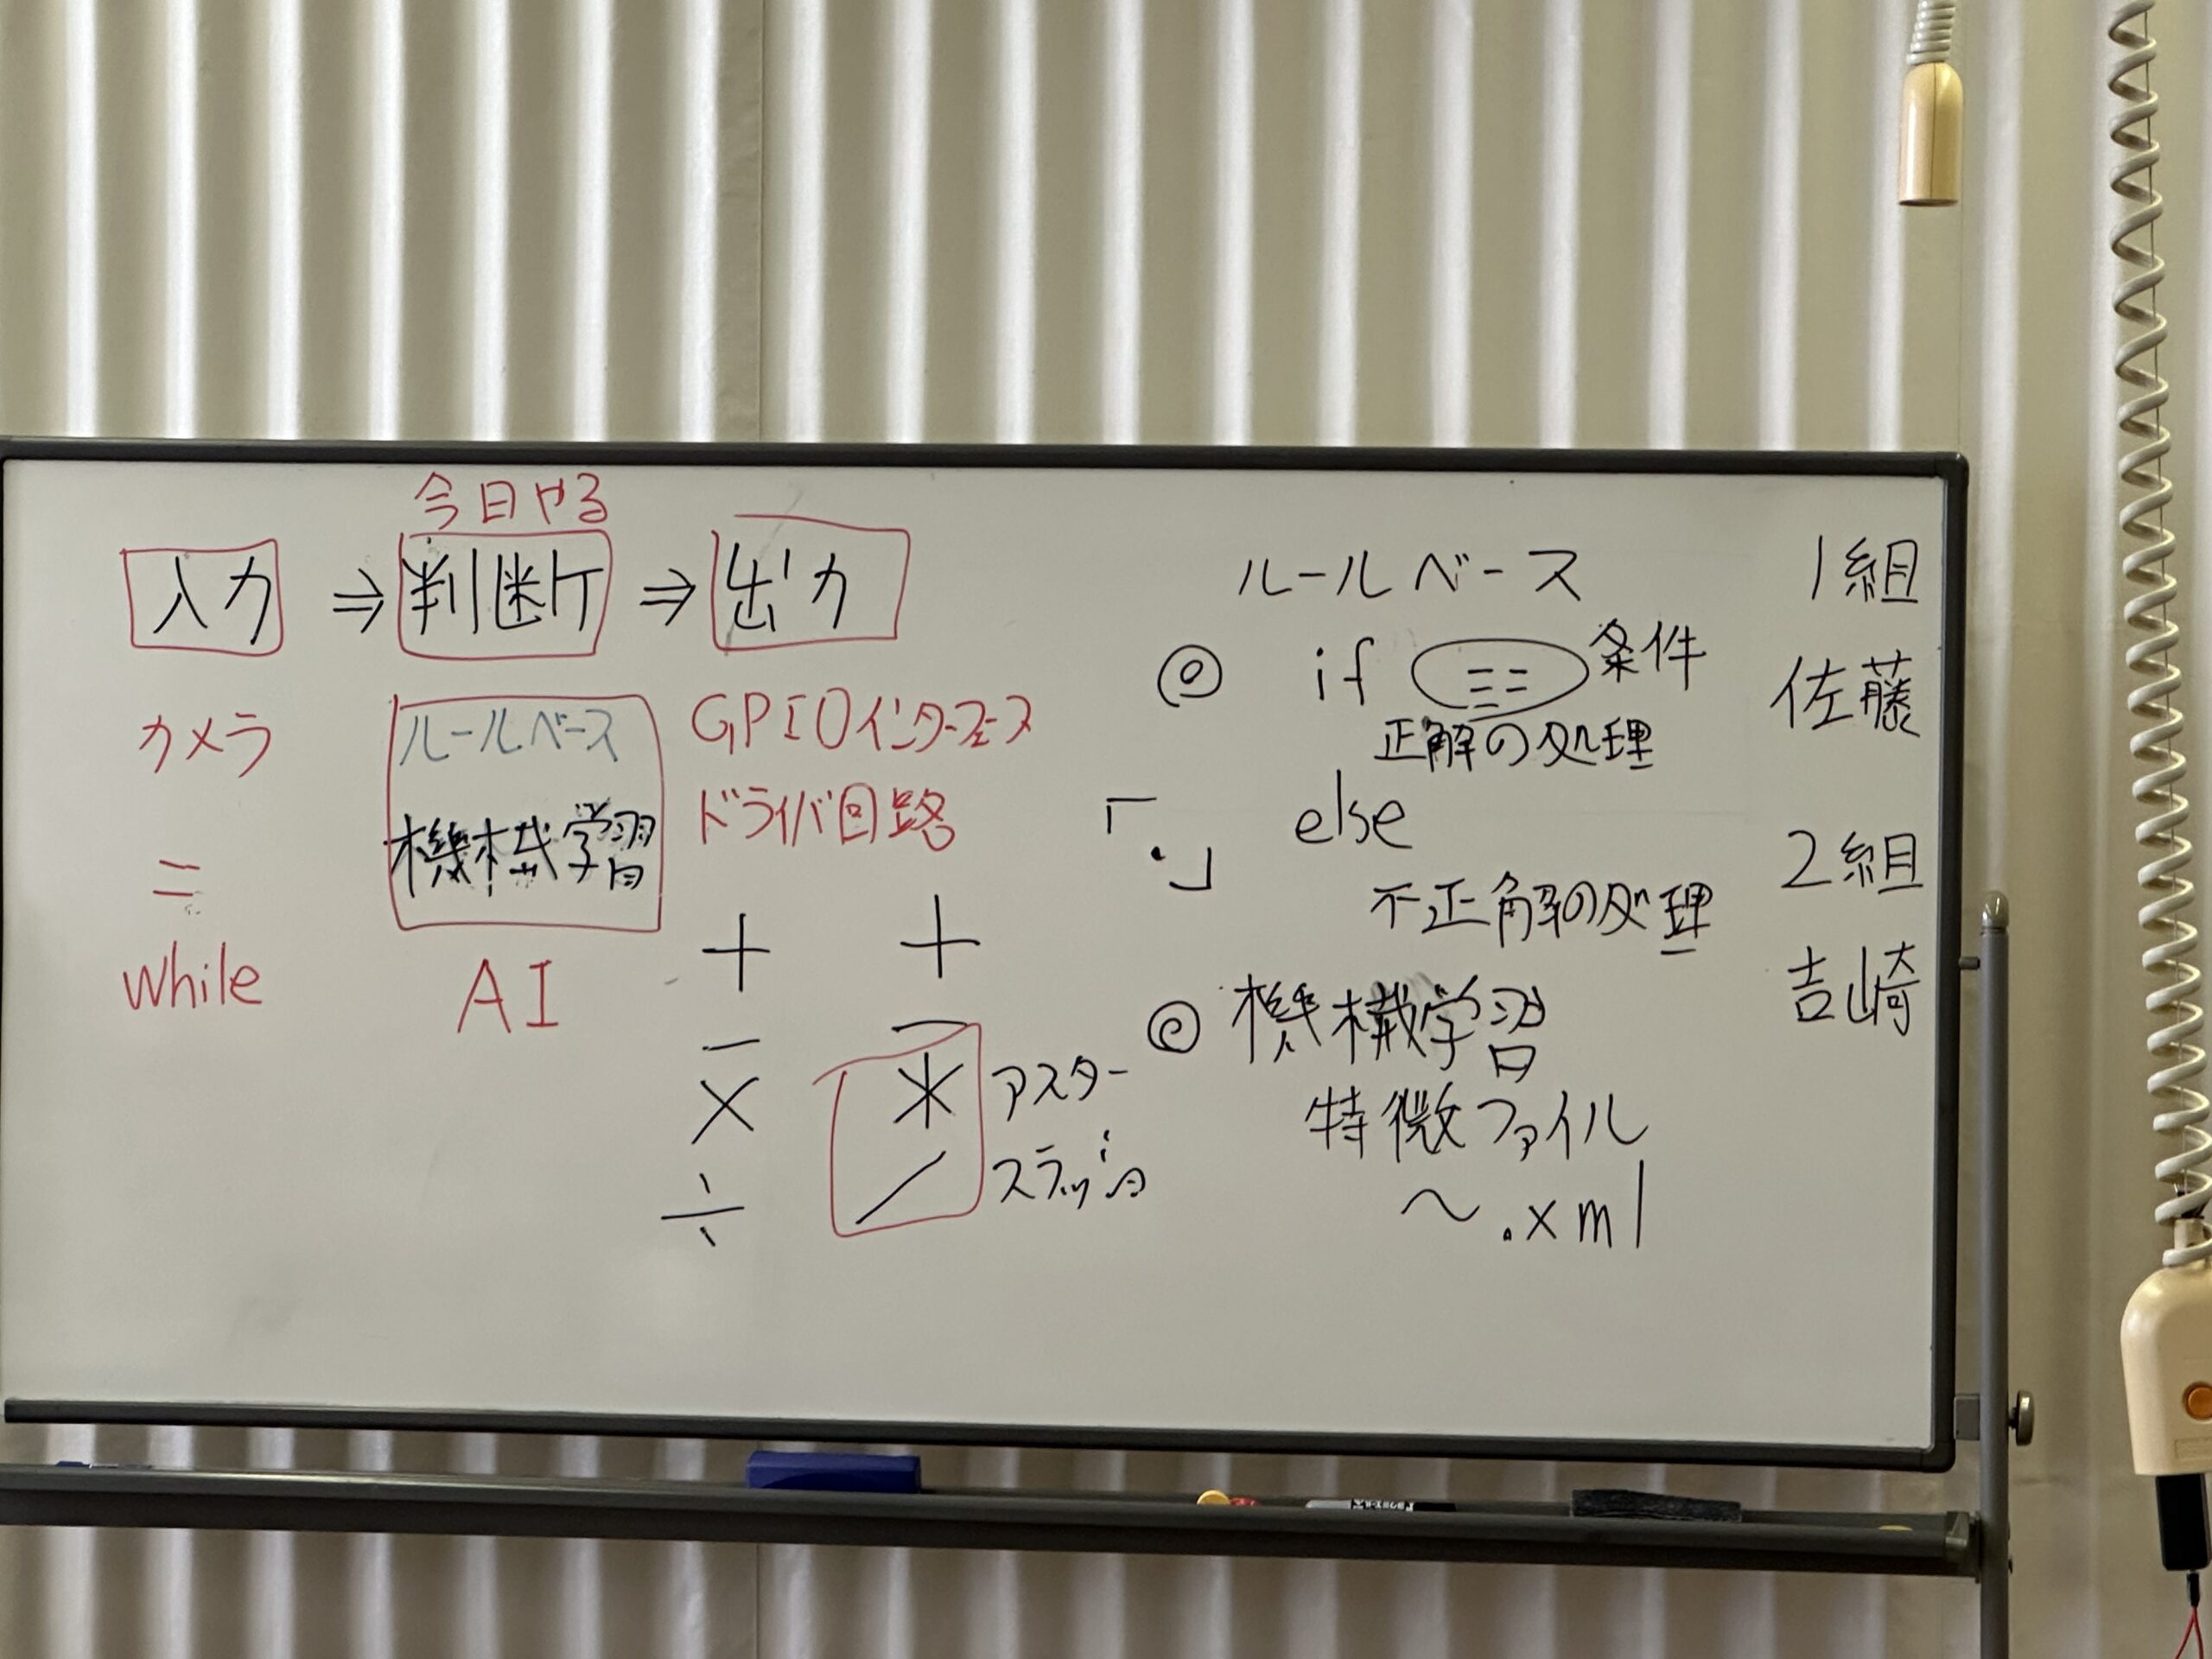 今日やる
入力 ⇒ 判断 ⇒ 出力
カメラ
=
while
ルールベース
機械学習
AI
GPIOインターフェース
ドライバ回路
+ +
- -
× * アスター
÷ / スラッシュ
ルールベース
◎ if == 条件
正解の処理
「・」 else
不正解の処理
◎ 機械学習
特徴ファイル
～.xml
1組
佐藤
2組
吉崎